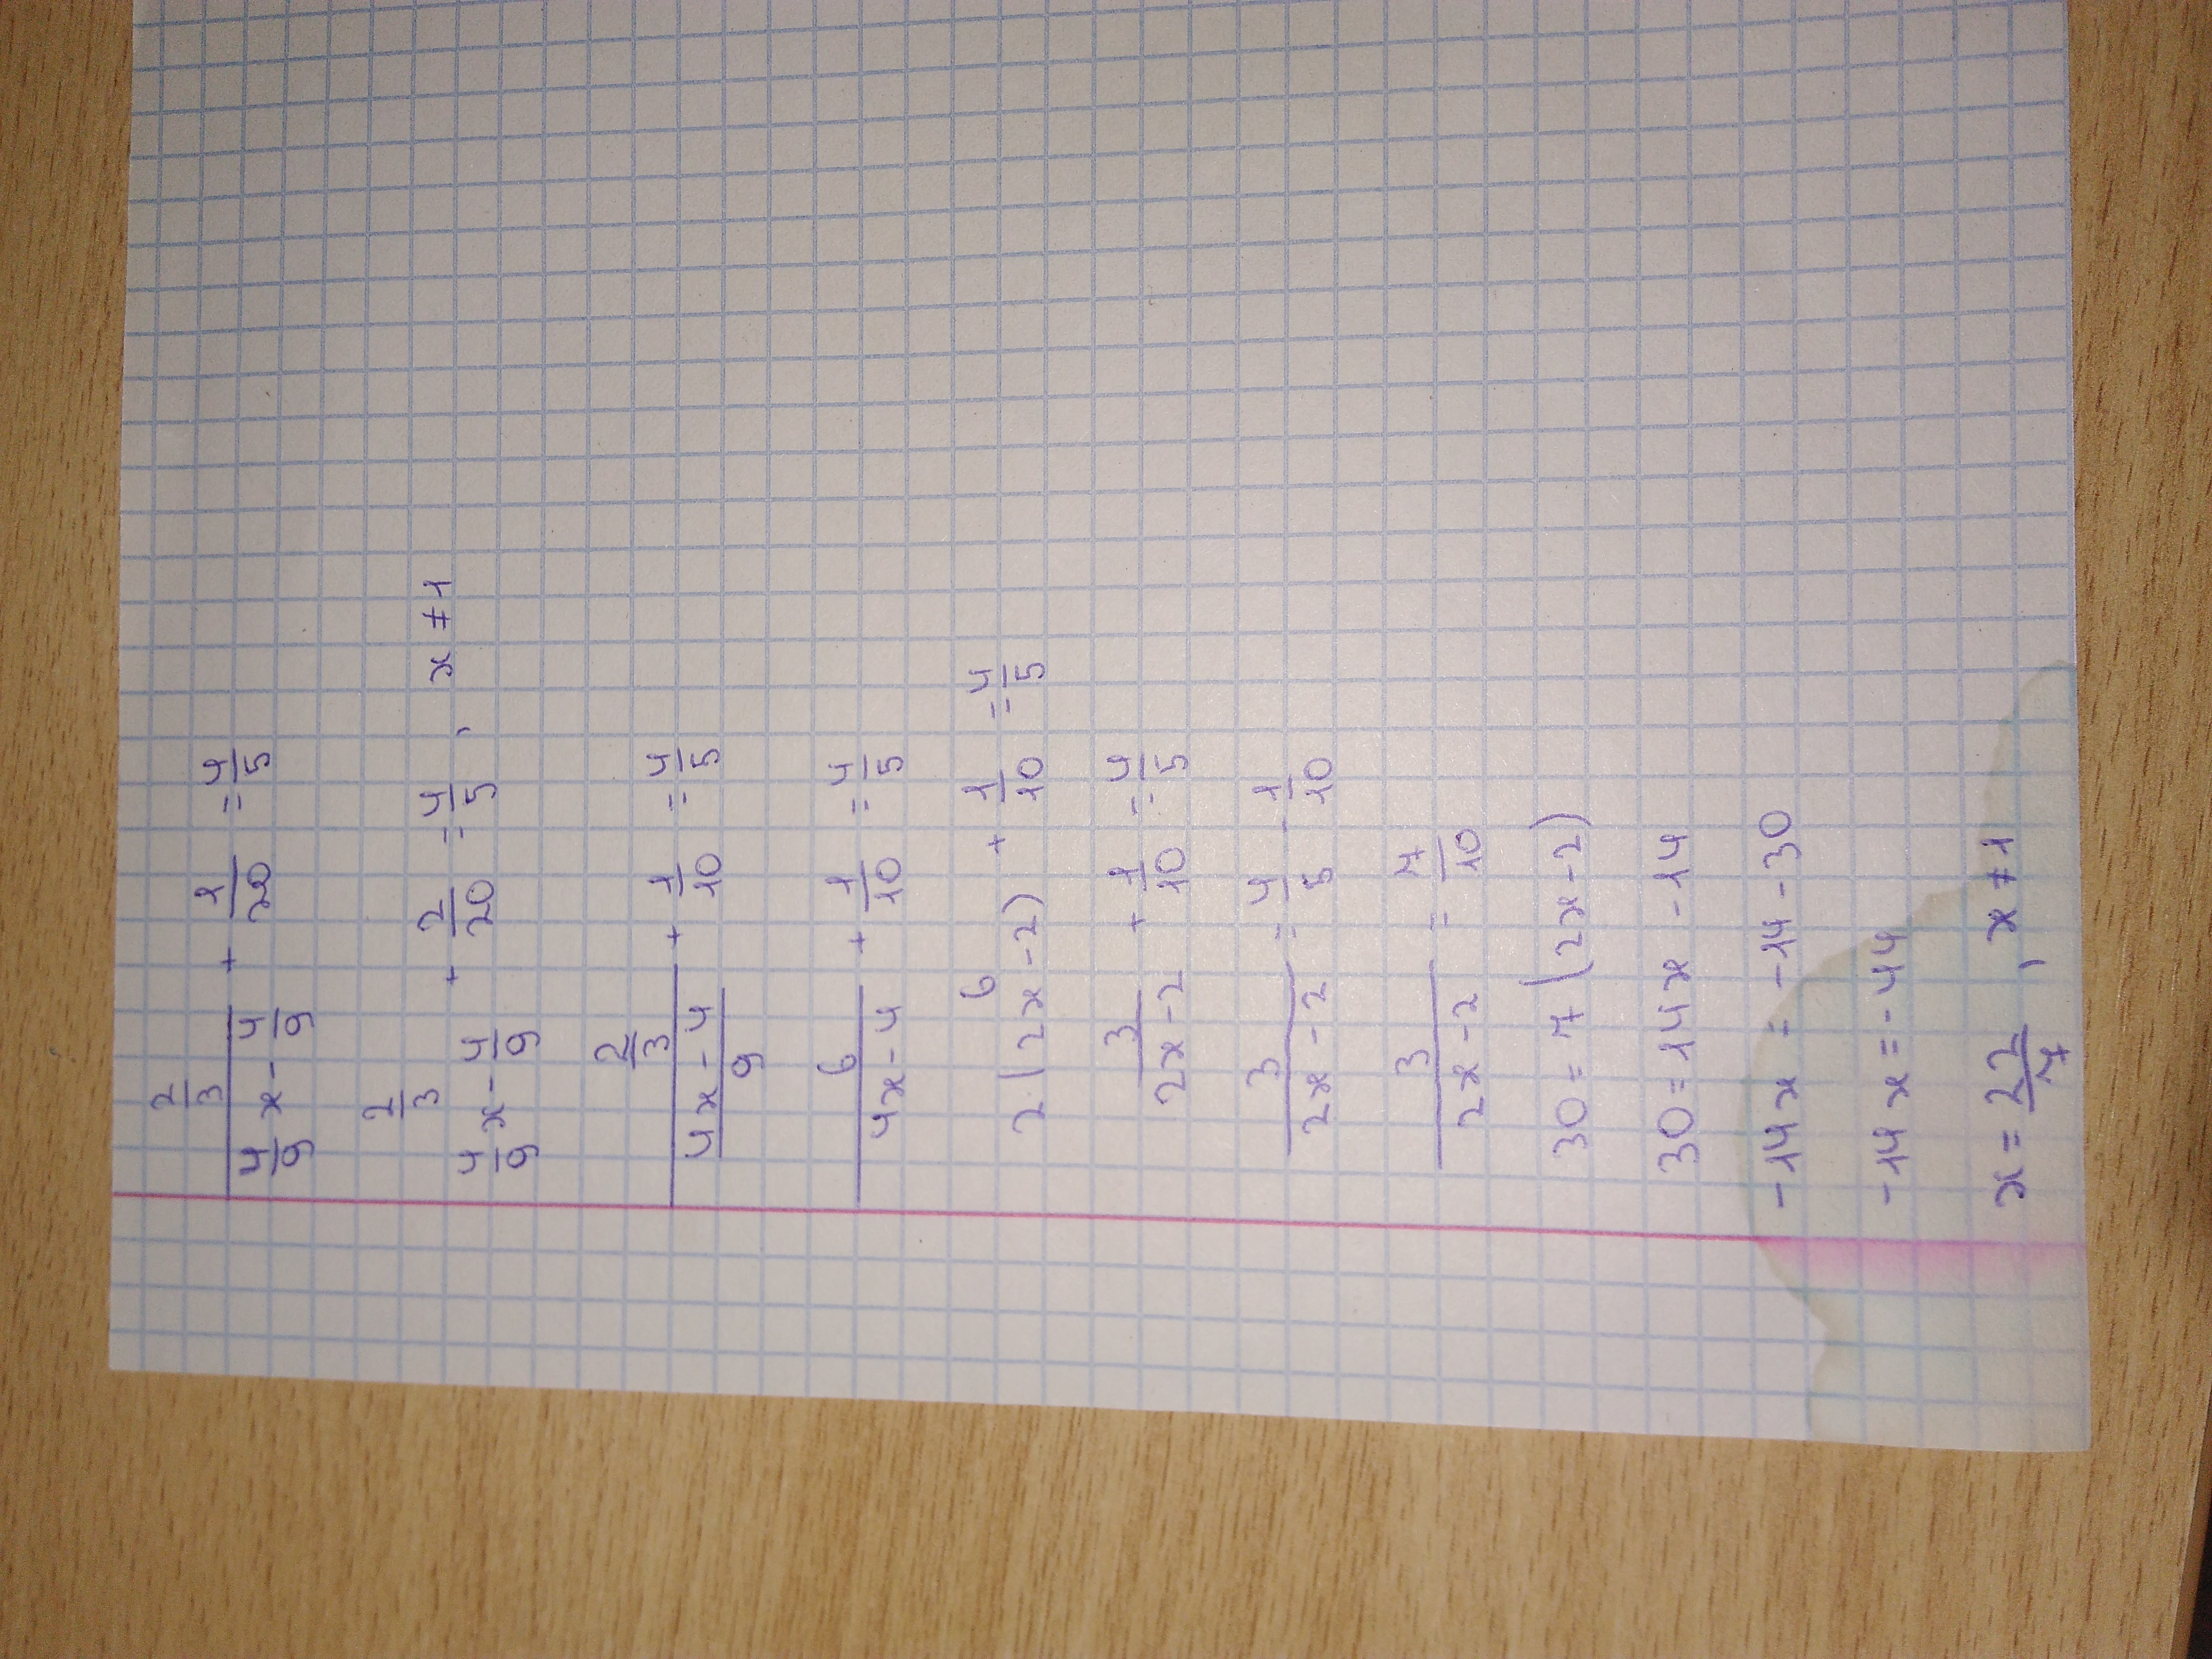 \frac{\frac{2}{3}}{\frac{4}{9}x - \frac{4}{9}} + \frac{1}{20} = \frac{4}{5}
\frac{2}{3} \frac{4}{9}x - \frac{4}{9} + \frac{2}{20} = \frac{4}{5}, x ≠ 1
\frac{\frac{2}{3}}{\frac{4x - 4}{9}} + \frac{1}{10} = \frac{4}{5}
\frac{6}{4x - 4} + \frac{1}{10} = \frac{4}{5}
6 2(2x - 2) + \frac{1}{10} = \frac{4}{5}
\frac{3}{2x - 2} + \frac{1}{10} = \frac{4}{5}
\frac{3}{2x - 2} = \frac{4}{5} - \frac{1}{10}
\frac{3}{2x - 2} = \frac{7}{10}
30 = 7(2x - 2)
30 = 14x - 14
-14x = -14 - 30
-14x = -44
x = \frac{22}{7}, x ≠ 1